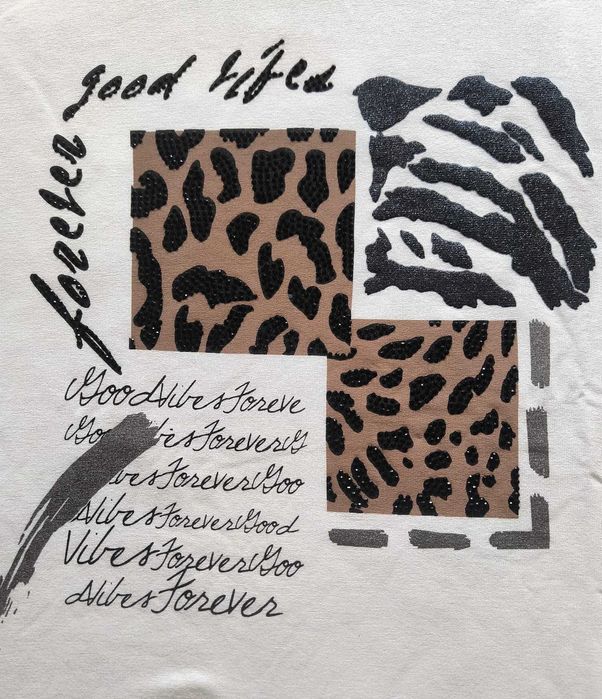 forever
good vibes
GoodVibesForeve
Goo ibesForeverG
ibesForeverGoo
dVibesForeverGood
VibesForeverGoo
dVibesForever